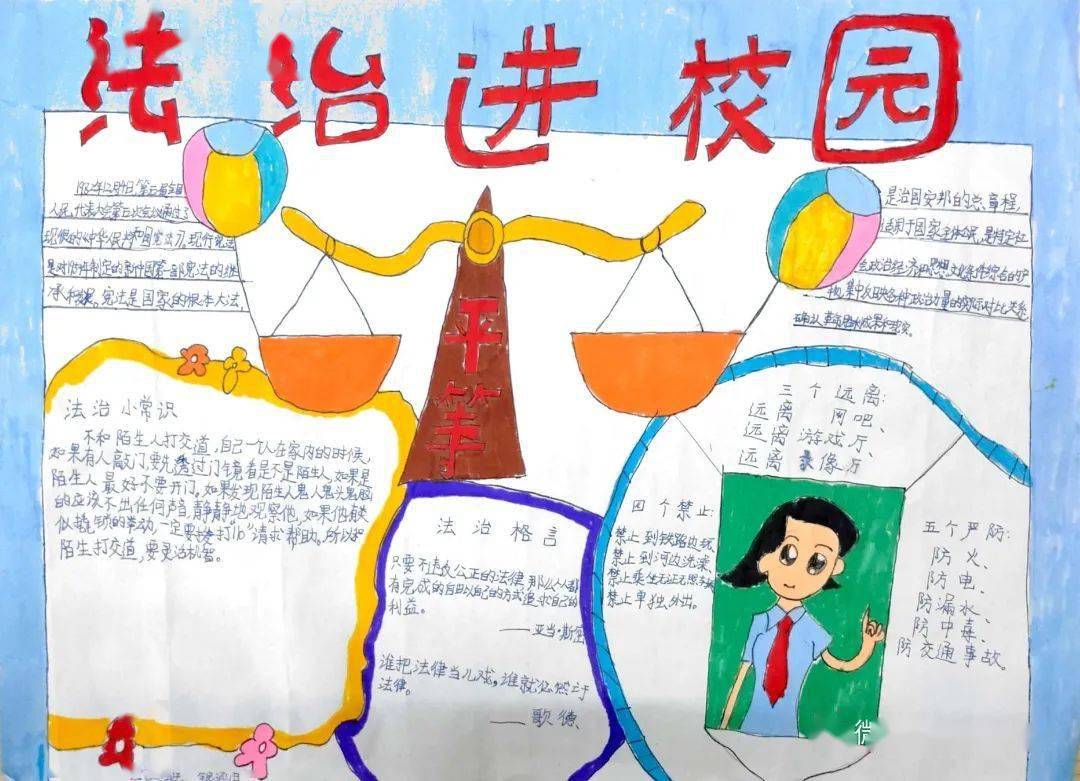 法治进校园
1982年12月4日,第五届全国
人民代表大会第五次会议通过了
是治国安邦的总章程,
适用于国家全体公民,是特定社
会政治经济和思想文化条件综合的产
物,集中反映各种政治力量的实际对比关系
确认革命胜利成果和现实
承和发展。宪法是国家的根本大法,
平等
法治小常识
不和陌生人打交道,自己一个人在家内的时候,
如果有人敲门,要先透过门镜看是不是陌生人,如果是
陌生人最好不要开门,
的应该不出任何声音静静地观察他,如果他有类
陌生打交道,要更治机警。
法治格言
只要不违反公正的法律,那么人人都
有完成的自由以自己的方式追求自己的
利益。
——亚当·斯密
谁把法律当儿戏,谁就必然亡于
法律。
——歌德
三个远离:
远离网吧、
远离游戏厅、
远离录像厅
四个禁止:
禁止到铁路边玩,
禁止到河边洗澡,
禁止乘坐无证无照车辆
禁止单独外出。
五个严防:
防火、
防电、
防漏水、
防中毒、
防交通事故。